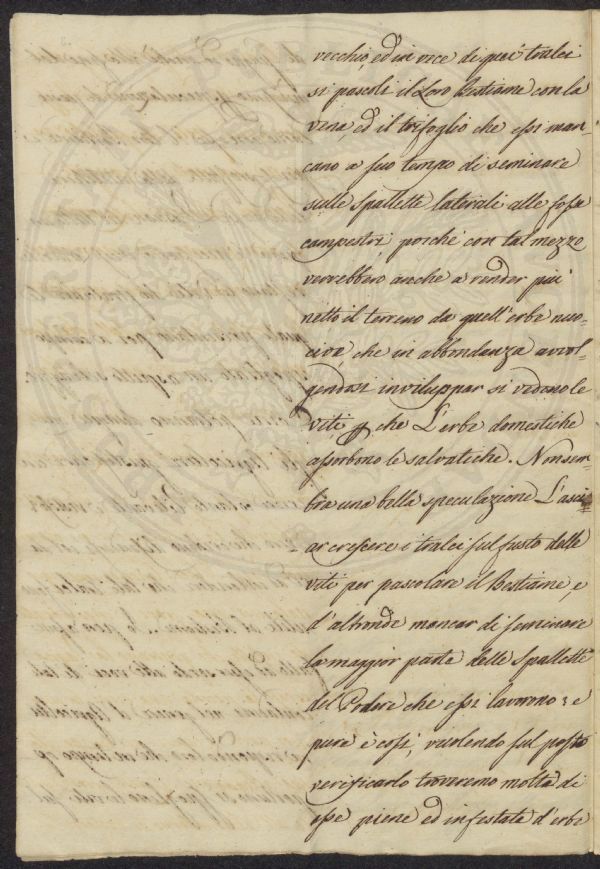 vecchio, ed in vece di quei tralci
si pascoli il Loro Bestiame con la
vena, ed il trifoglio che essi man-
cano a suo tempo di seminare
sulle spallette laterali alle fosse
campestri, porché con tal mezzo
verrebbero anche a render più
netto il terreno da quell'erbe noc-
cive, che in abbondanza avvol-
gendosi inviluppar si vedono le
viti che L'erbe domestiche
assorbono le salvatiche. Non sem-
bra una bella speculazione Lasci-
ar crescere i tralci sul fusto delle
viti per pascolare il Bestiame, e
d'altronde mancar di seminare
la maggior parte delle Spallette
del Podere che essi lavorono: e
pure è così, vuolendo sul posto
verificarlo troveremo molta di
esse piene ed infestate d'erbe